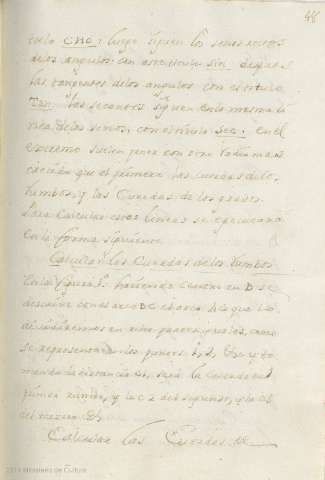 48
tulo CHO; luego siguen los senos rectos
de los angulos con este titulo Sin. despues
las tangentes de los angulos con el titulo
Tan. y las secantes siguen en la misma li
nea de los senos, con el titulo Sec. en el
extremo suelen poner con otra
que el primero las cuerdas de los
Rumbos, y las Cuerdas de los grados.
Para Calcular estas lineas se executara
en la forma siguiente
Calcular las Cuerdas de los Rumbos
En la figura haciendo centro en D se
descrive con el arco BC
dividiremos en ocho partes yguales, como
se representa en los puntos 1, 2, &c y to
mando la distancia B1, sera la cuerda del
primer rumbo, y la 2 del segundo, y la
del tercero &c
Calcular las Cuerdas de
Ministerio de Cultura